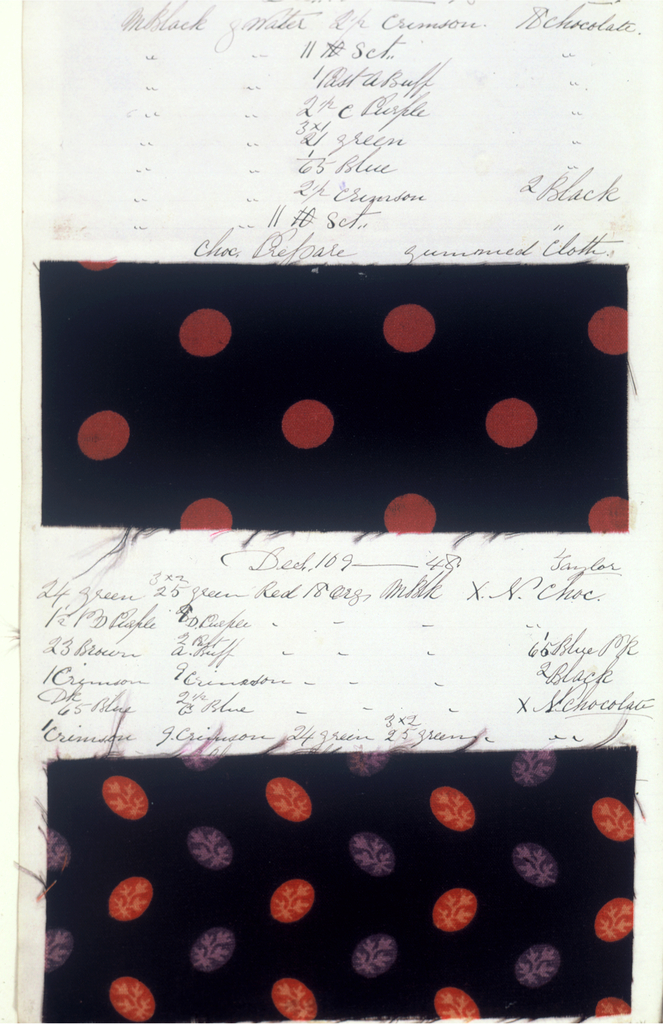 MBlack g Water 2/r Crimson. N Chocolate.
" " 11 N Sct.. "
" " 1 Past A Buff "
" " 2/r C Purple "
" " 3x1 21 green "
" " 1/65 Blue "
" " 2/r Crimson 2 Black
" " 11 N Sct.. "
Choc. Prepare gummed Cloth.
Dec. 109 — 48. Taylor
24 green 3x2 25 green Red 18 MBlk X. N. Choc.
Purple D Purple " " " "
23 Brown 2 Past A. Buff " " " 65 Blue PK
1 Crimson 9 Crimson " " " 2 Black
DK 65 Blue 2/r C Blue " " " X N. Chocolate
1 Crimson 9 Crimson 24 green 3x2 25 green " "